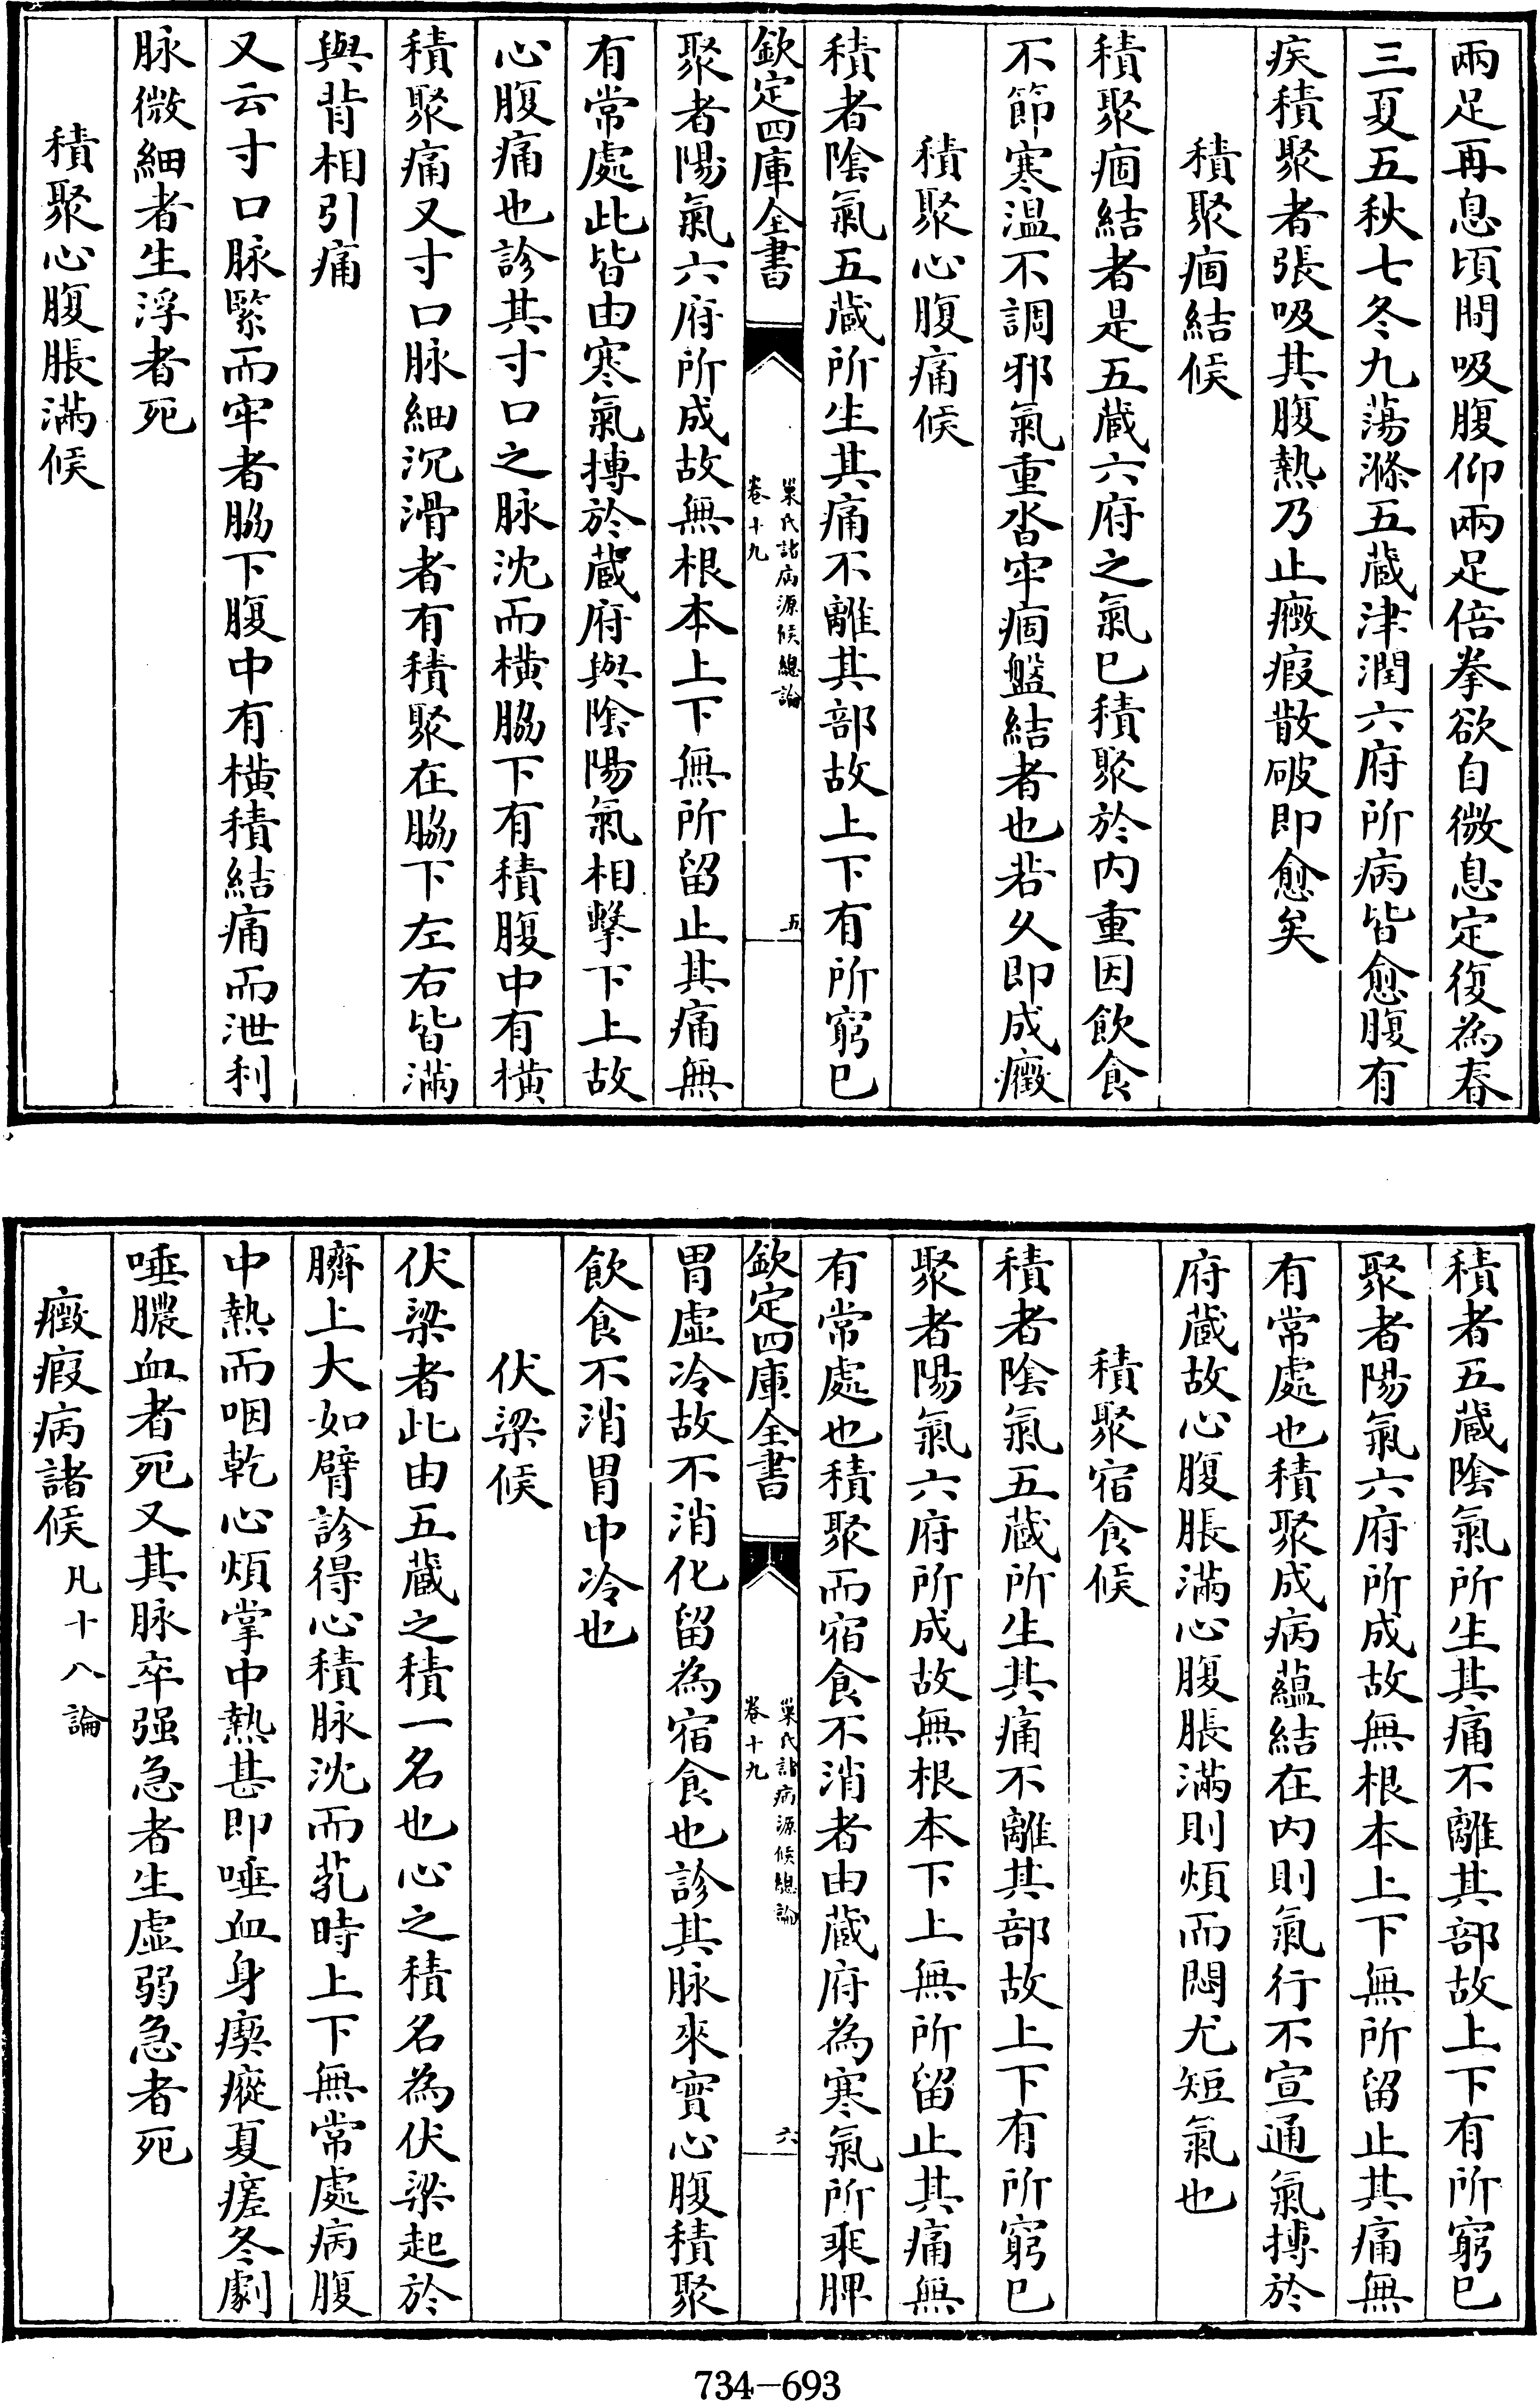 兩足再息頃間吸腹仰兩足倍拳欲自微息定復為春
三夏五秋七冬九蕩滌五蔵津潤六府所病皆愈腹有
疾積聚者張吸其腹熱乃止癥瘕散破即愈矣
積聚痼結候
積聚痼結者是五蔵六府之氣已積聚於内重因飲食
不節寒溫不調邪氣重沓牢痼盤結者也若久即成癥
積聚心腹痛候
積者隂氣五蔵所生其痛不離其部故上下有所窮已
欽定四庫全書
巢氏諸病源候總論
卷十九
五
聚者陽氣六府所成故無根本上下無所留止其痛無
有常處此皆由寒氣搏於蔵府與隂陽氣相擊下上故
心腹痛也診其寸口之脉沈而橫脇下有積腹中有橫
積聚痛又寸口脉細沉滑者有積聚在脇下左右皆滿
與背相引痛
又云寸口脉緊而牢者脇下腹中有橫積結痛而泄利
脉微細者生浮者死
積聚心腹脹滿候
積者五蔵隂氣所生其痛不離其部故上下有所窮已
聚者陽氣六府所成故無根本上下無所留止其痛無
有常處也積聚成病蘊結在内則氣行不宣通氣搏於
府蔵故心腹脹滿心腹脹滿則煩而悶尤短氣也
積聚宿食候
積者隂氣五蔵所生其痛不離其部故上下有所窮已
聚者陽氣六府所成故無根本下上無所留止其痛無
有常處也積聚而宿食不消者由蔵府為寒氣所乘脾
欽定四庫全書
巢氏諸病源候總論
卷十九
六
胃虛冷故不消化留為宿食也診其脉來實心腹積聚
飲食不消胃中冷也
伏梁候
伏梁者此由五蔵之積一名也心之積名為伏梁起於
臍上大如臂診得心積脉沈而芤時上下無常處病腹
中熱而咽乾心煩掌中熱甚即唾血身瘈瘲夏瘥冬劇
唾膿血者死又其脉卒强急者生虛弱急者死
癥瘕病諸候凡十八論
734-693